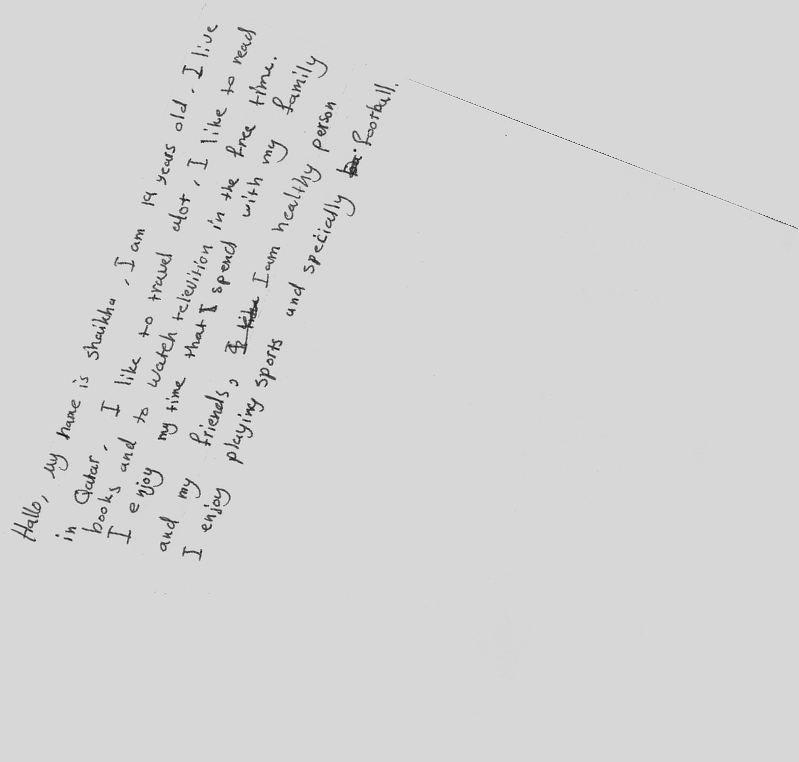 Hallo, My name is shaikha, I am 19 years old. I live
in Qatar, I like to travel alot, I like to read
books and to watch television in the free time.
I enjoy my time that I spend with my family
and my friends, I am healthy person
I enjoy playing sports and specially football.